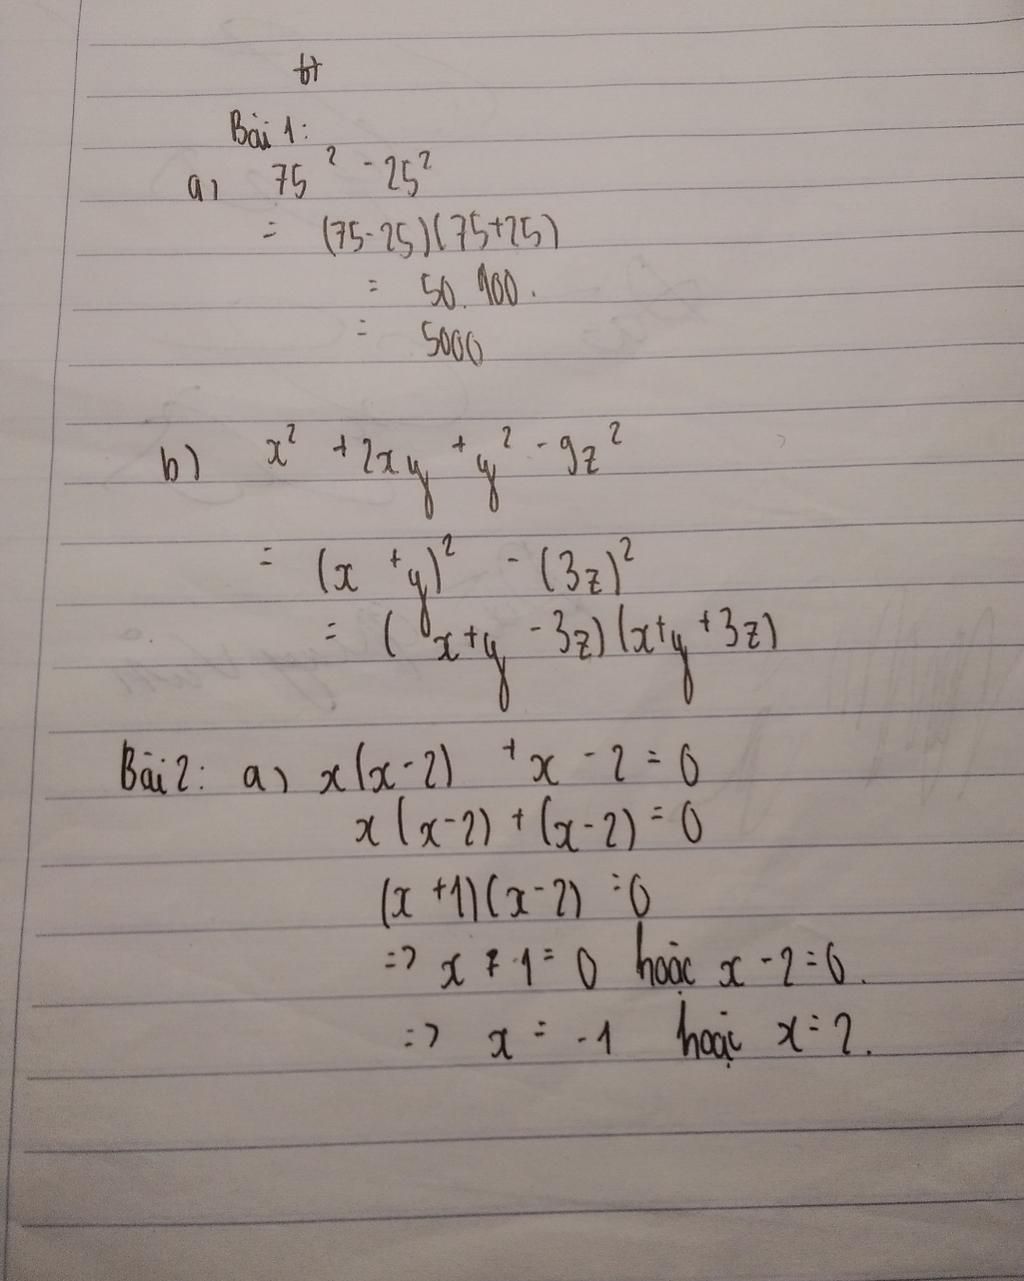 Bài 1:
a) 75² - 25²
= (75-25)(75+25)
= 50.100.
= 5000
b) x² + 2xy + y² - 9z²
= (x + y)² - (3z)²
= (x+y - 3z)(x+y+3z)
Bài 2: a) x(x-2) + x - 2 = 0
x(x-2) + (x-2) = 0
(x+1)(x-2) = 0
=> x + 1 = 0 hoặc x - 2 = 0.
=> x = -1 hoặc x = 2.